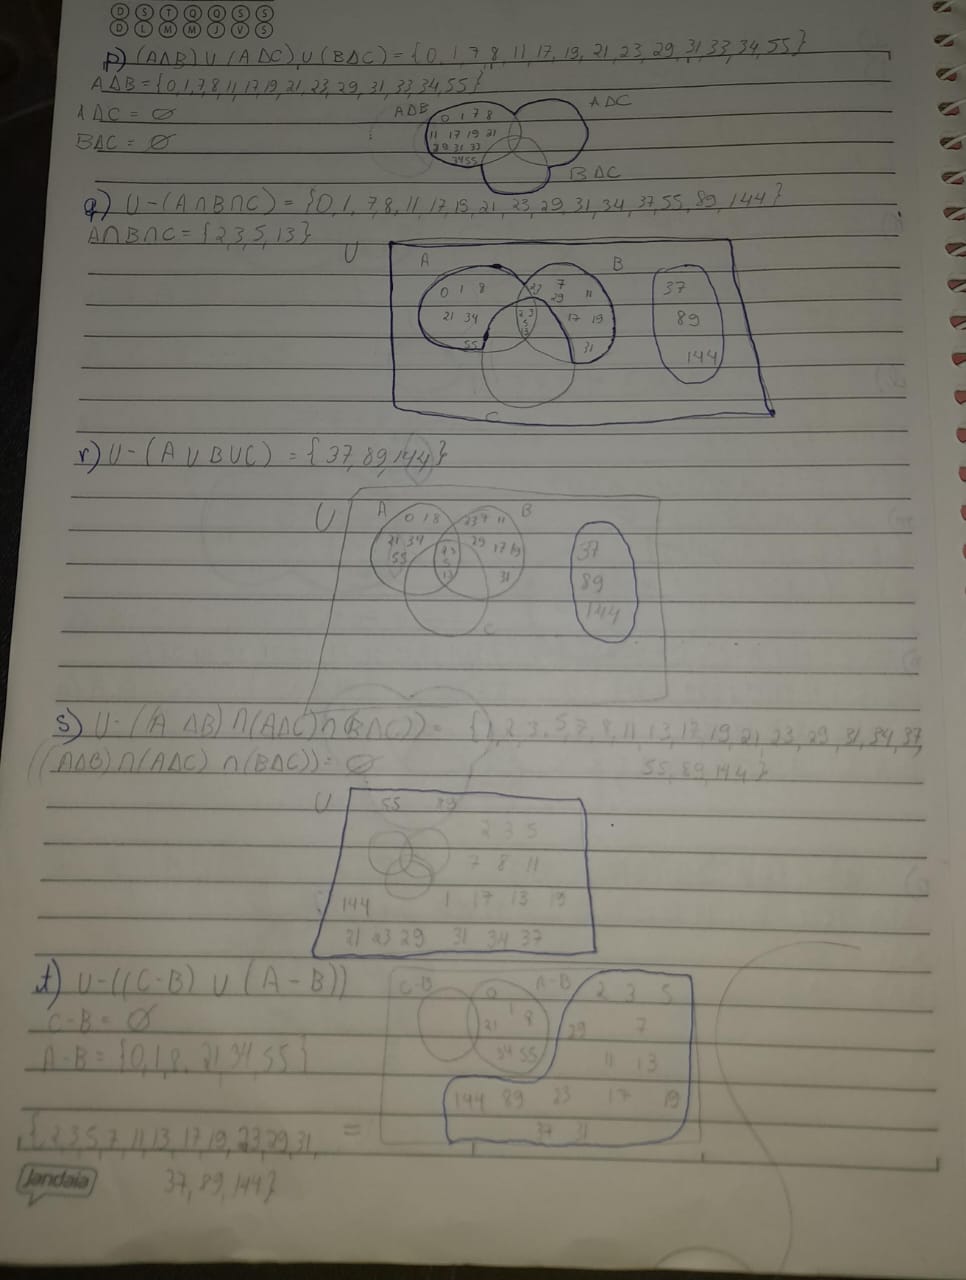 D S T Q Q S S
D L M M J V S
p) (AΔB) ∪ (AΔC) ∪ (BΔC) = {0, 1, 7, 8, 11, 17, 19, 21, 23, 29, 31, 33, 34, 55}
AΔB = {0, 1, 7, 8, 11, 17, 19, 21, 23, 29, 31, 33, 34, 55}
AΔC = ∅
BΔC = ∅
AΔB
AΔC
0 1 7 8
11 17 19 21
29 31 33
34 55
BΔC
q) U-(A∩B∩C) = {0, 1, 7, 8, 11, 17, 19, 21, 23, 29, 31, 34, 37, 55, 89, 144}
A∩B∩C = {2, 3, 5, 13}
U
A
B
0 1 8
23 7
29 11
37
21 34
2 3
5
13
17 19
89
55
31
144
C
r) U-(A∪B∪C) = {37, 89, 144}
U
A
0 1 8
23 7 11
B
21 34
29
17 19
37
55
2 3
5
13
31
89
144
C
s) U-((AΔB)∩(AΔC)∩(BΔC)) = {1, 2, 3, 5, 7, 8, 11, 13, 17, 19, 21, 23, 29, 31, 34, 37,
((AΔB)∩(AΔC)∩(BΔC)) = ∅
55, 89, 144}
U
55 89
2 3 5
7 8 11
144 1 17 13 19
21 23 29 31 34 37
t) U-((C-B) ∪ (A-B))
C-B
0
A-B
2 3 5
C-B = ∅
21 1 8
29 7
A-B = {0, 1, 8, 21, 34, 55}
34 55
11 13
144 89 23 17 19
{2, 3, 5, 7, 11, 13, 17, 19, 23, 29, 31, =
37 31
37, 89, 144}
Jandaia